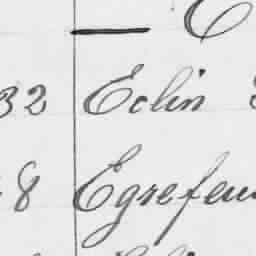 32 Eclin
8 Egrefeu